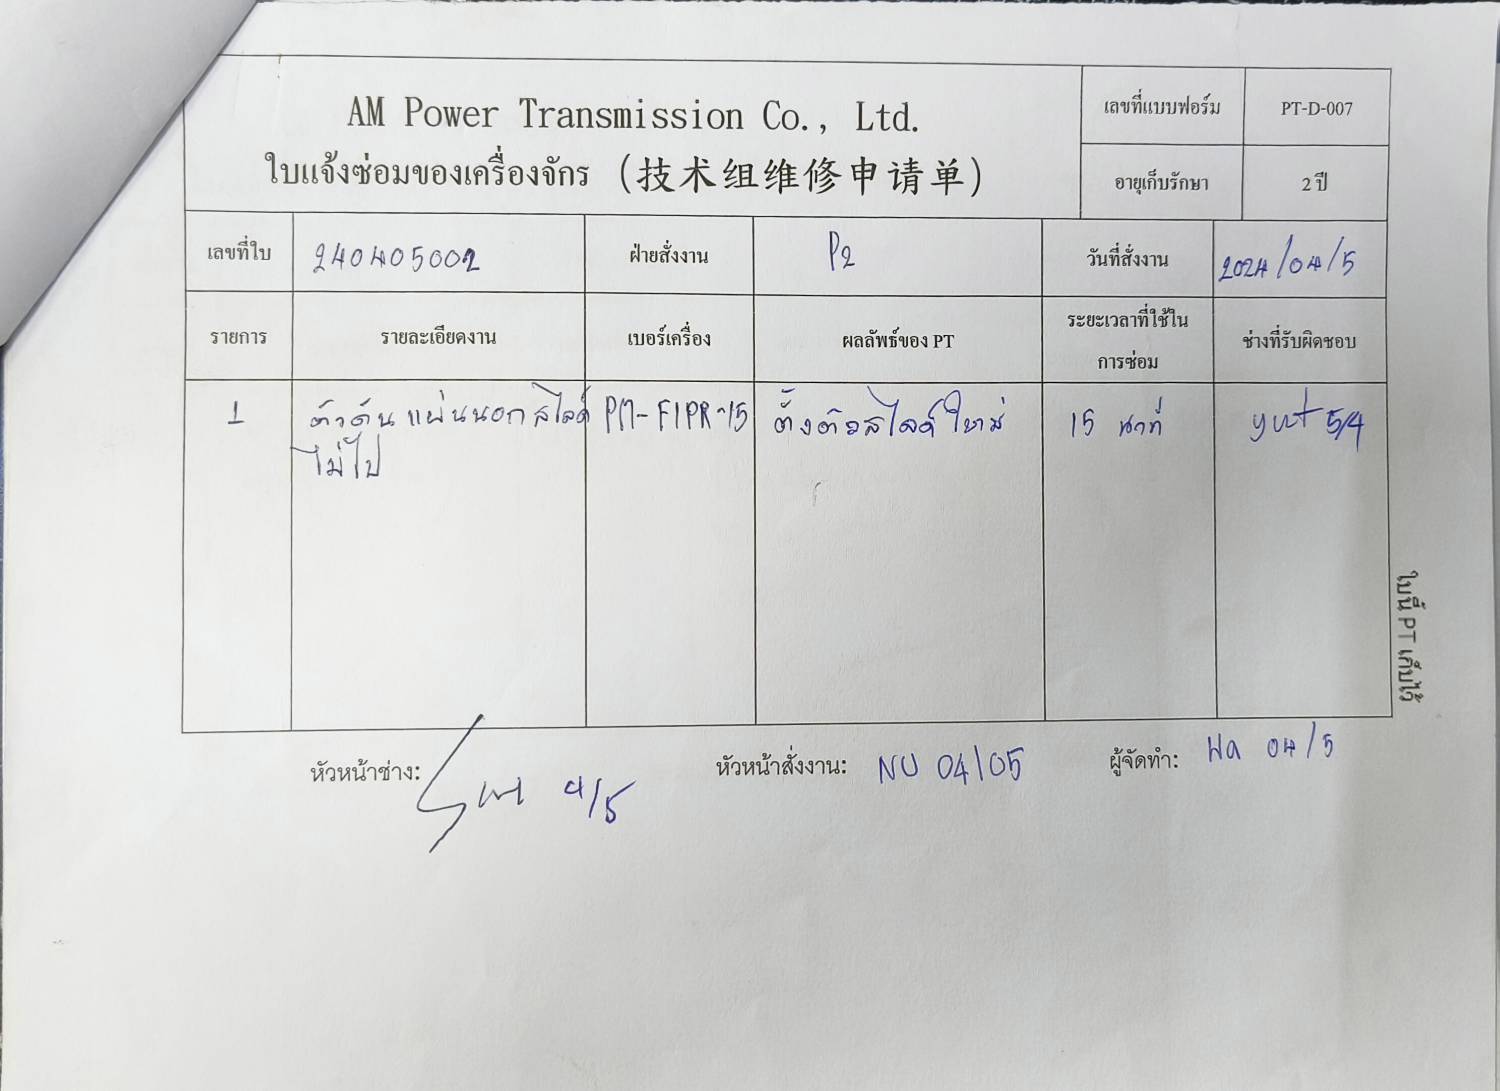 AM Power Transmission Co., Ltd.
ใบแจ้งซ่อมของเครื่องจักร (技术组维修申请单)
เลขที่แบบฟอร์ม PT-D-007
อายุเก็บรักษา 2 ปี
เลขที่ใบ 240405002 ฝ่ายสั่งงาน P2 วันที่สั่งงาน 2024/04/5
รายการ รายละเอียดงาน เบอร์เครื่อง ผลลัพธ์ของ PT ระยะเวลาที่ใช้ใน ช่างที่รับผิดชอบ
การซ่อม
1 ตัวดันแผ่นนอกสไลด์ PM-F1PR-15 ตั้งตัวสไลด์ใหม่ 15 นาที 5/4
ไม่ไป
ใบนี้ PT เก็บไว้
หัวหน้าช่าง: 4/5 หัวหน้าสั่งงาน: NU 04/05 ผู้จัดทำ: 04/5